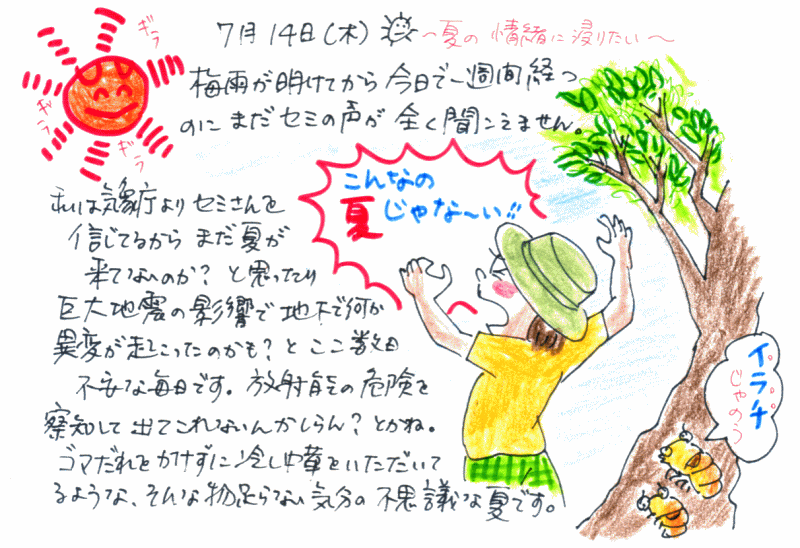 7月14日(木)
～夏の情緒に浸りたい～
ギラ
ギラ
ギラ
梅雨が明けてから今日で一週間経つ
のにまだセミの声が全く聞こえません。
こんなの
夏じゃな～い!!
私は気象庁よりセミさんを
信じてるからまだ夏が
来ていないのか？と思ってたり
巨大地震の影響で地下で何か
異変が起こったのかも？とここ数日
不安な毎日です。放射能の危険を
察知して出てこれないんかしらん？とかね。
ゴマだれをかけずに冷し中華をいただいて
るような、そんな物足らない気分の不思議な夏です。
イラチ
じゃのう